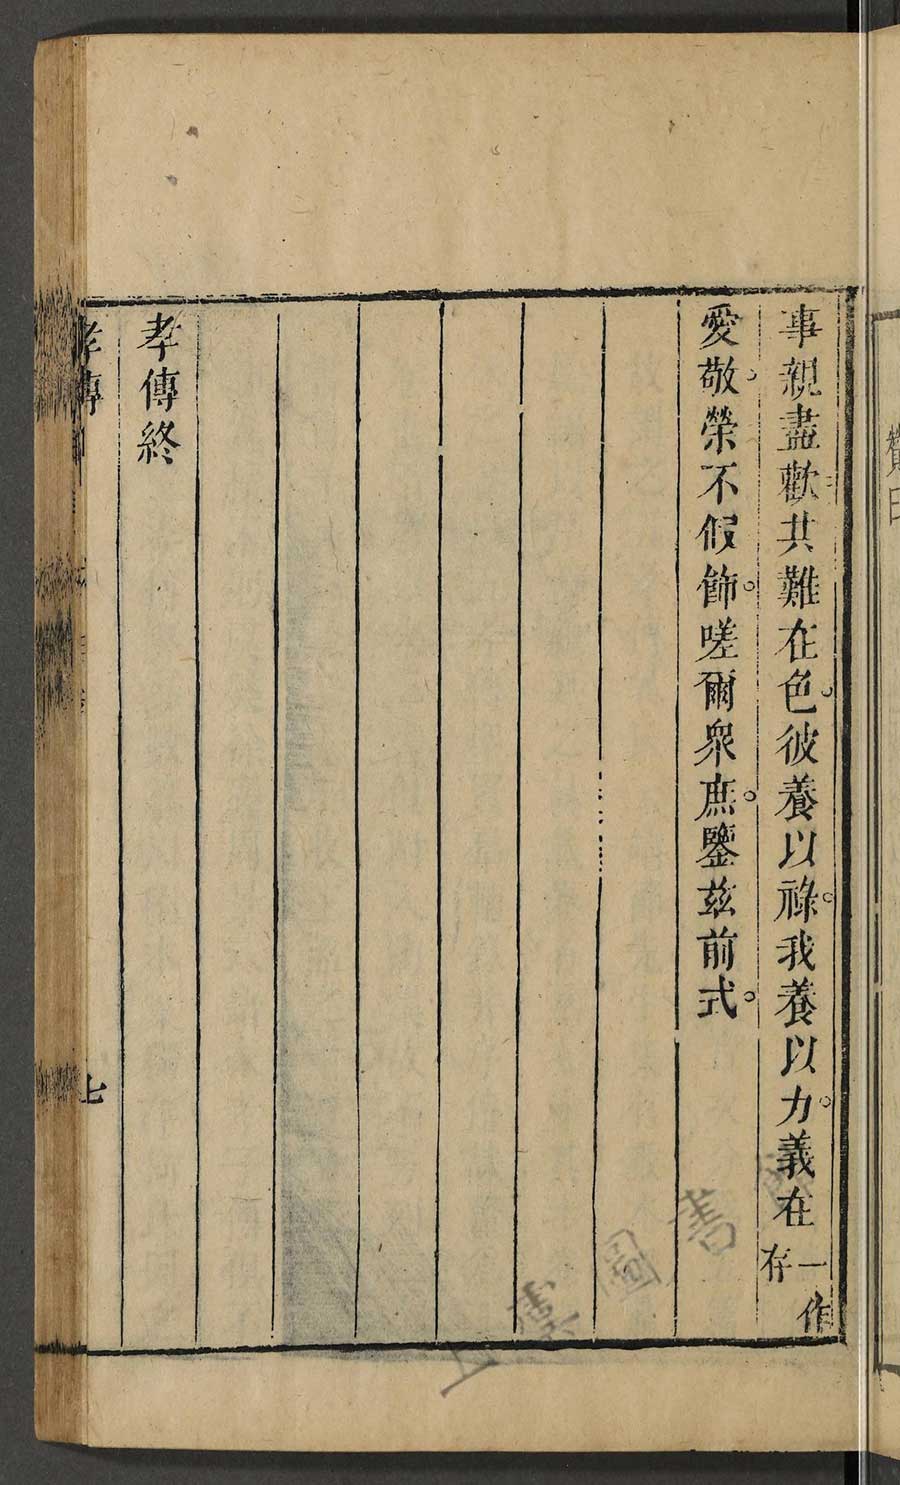 事親盡歡其難在色彼養以祿我養以力義在一作存
愛敬榮不假飾嗟爾衆庶鑒茲前式
孝傳終
孝傳
七
上虞圖書館